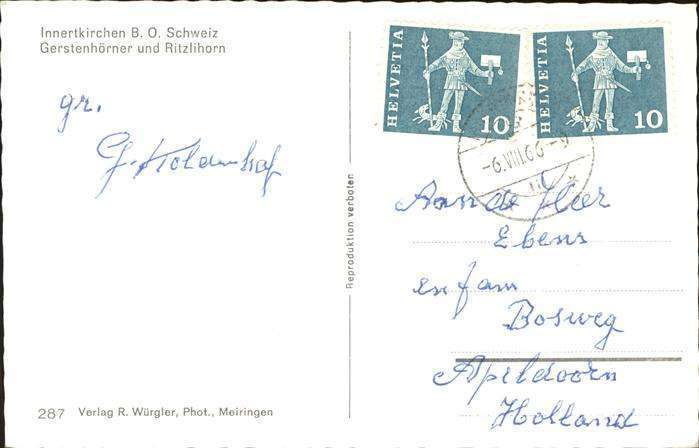 Innertkirchen B. O. Schweiz
Gerstenhörner und Ritzlihorn
gr.
HELVETIA 10
HELVETIA 10
Aan de Heer
Ebens
en fam
Bosweg
Apeldoorn
Holland
Reproduktion verboten
287 Verlag R. Würgler, Phot., Meiringen